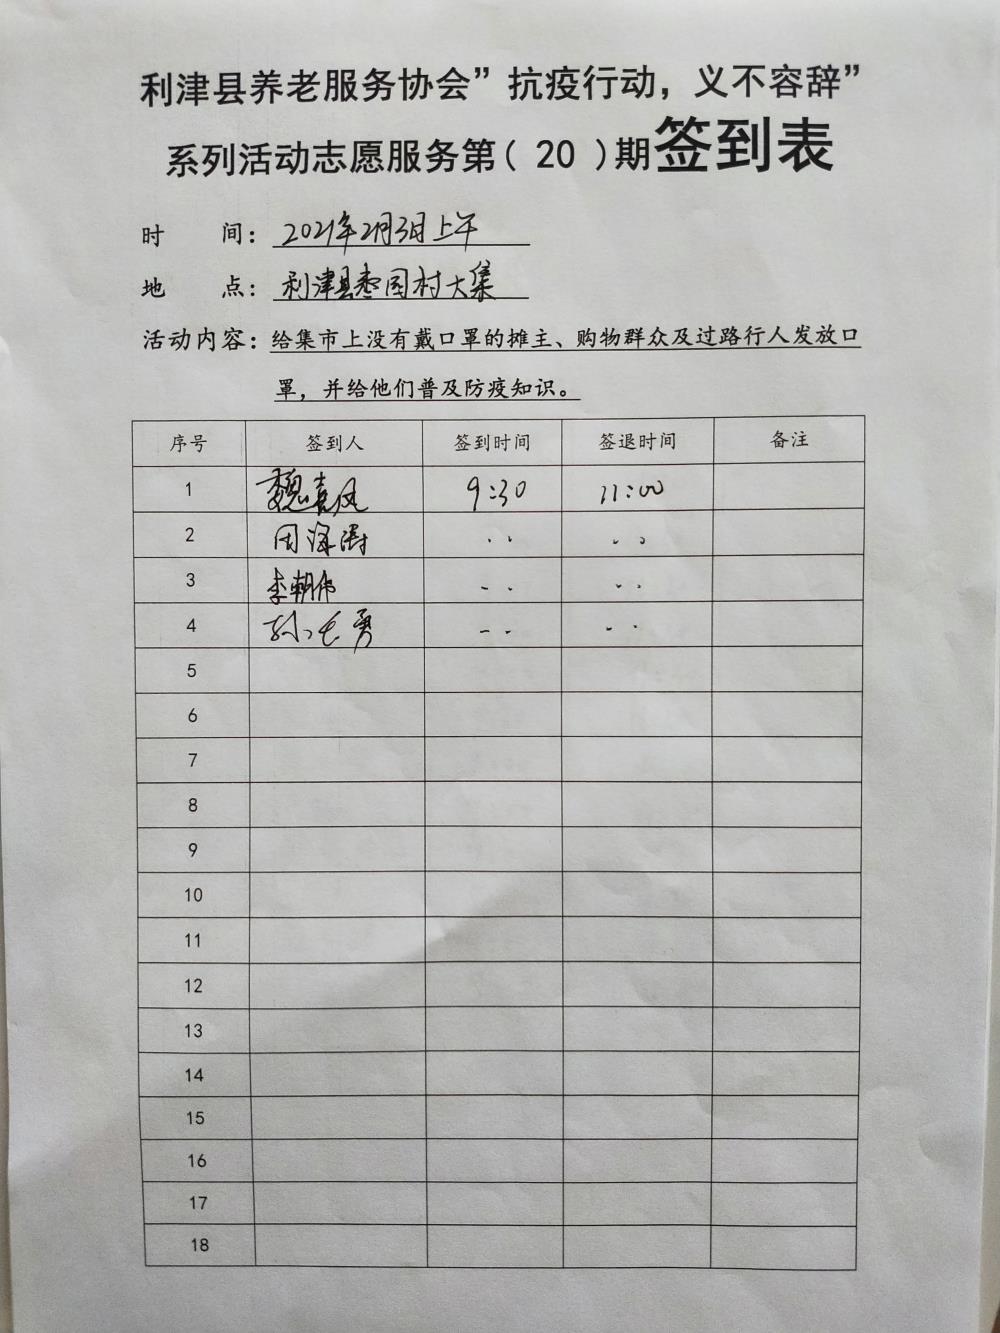 利津县养老服务协会”抗疫行动，义不容辞”
系列活动志愿服务第( 20 )期签到表
时 间：2021年2月3日上午
地 点：利津县枣园村大集
活动内容：给集市上没有戴口罩的摊主、购物群众及过路行人发放口
罩，并给他们普及防疫知识。
序号 签到人 签到时间 签退时间 备注
1 魏喜风 9:30 11:00
2 田海涛
3 李朝伟
4 孙长勇
5
6
7
8
9
10
11
12
13
14
15
16
17
18